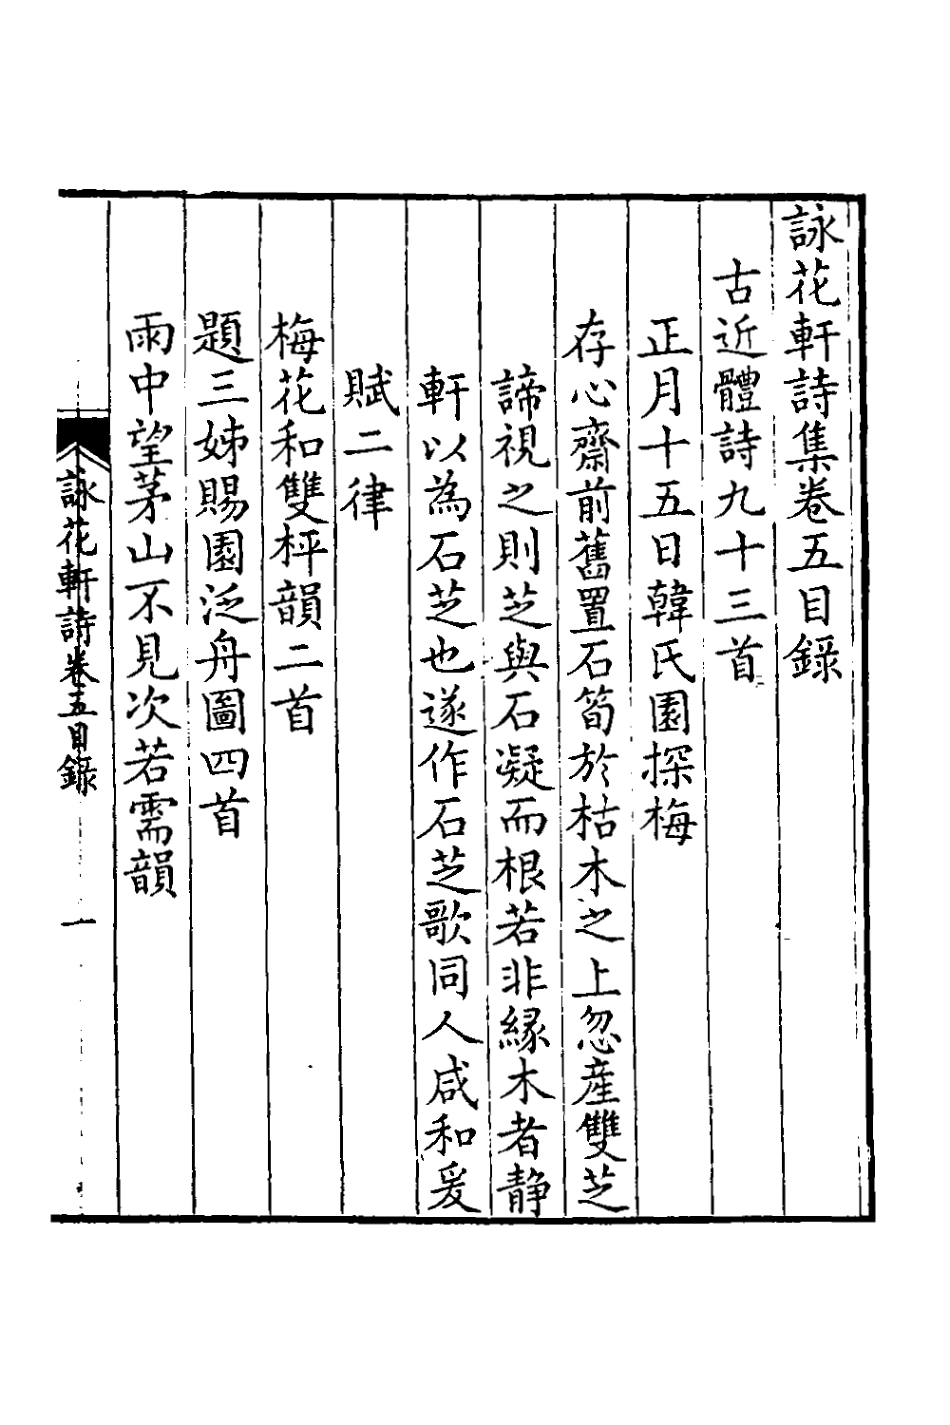 詠花軒詩集卷五目錄
古近體詩九十三首
正月十五日韓氏園探梅
存心齋前舊置石筍於枯木之上忽產雙芝
諦視之則芝與石凝而根若非緣木者靜
軒以為石芝也遂作石芝歌同人咸和爰
賦二律
梅花和雙枰韻二首
題三姊賜園泛舟圖四首
雨中望茅山不見次若需韻
詠花軒詩卷五目錄
一